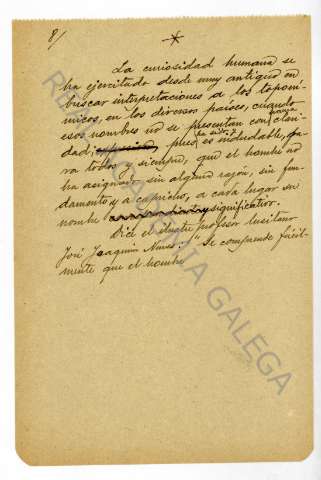 8/
La curiosidad humana se
ha ejercitado desde muy antiguo en
buscar interpretaciones a los toponí-
micos, en los diversos países, cuando
esos nombres no se presentan con clari-
dad, pues es indudable, pa-
ra todos y siempre, que el hombre no
ha asignado, sin alguna razón, sin fun-
damento y a capricho, a cada lugar su
nombre significativo.
Dice el ilustre profesor lusitano
José Joaquín Nunes: "Se comprende fácil-
mente que el hombre
REAL ACADEMIA GALEGA